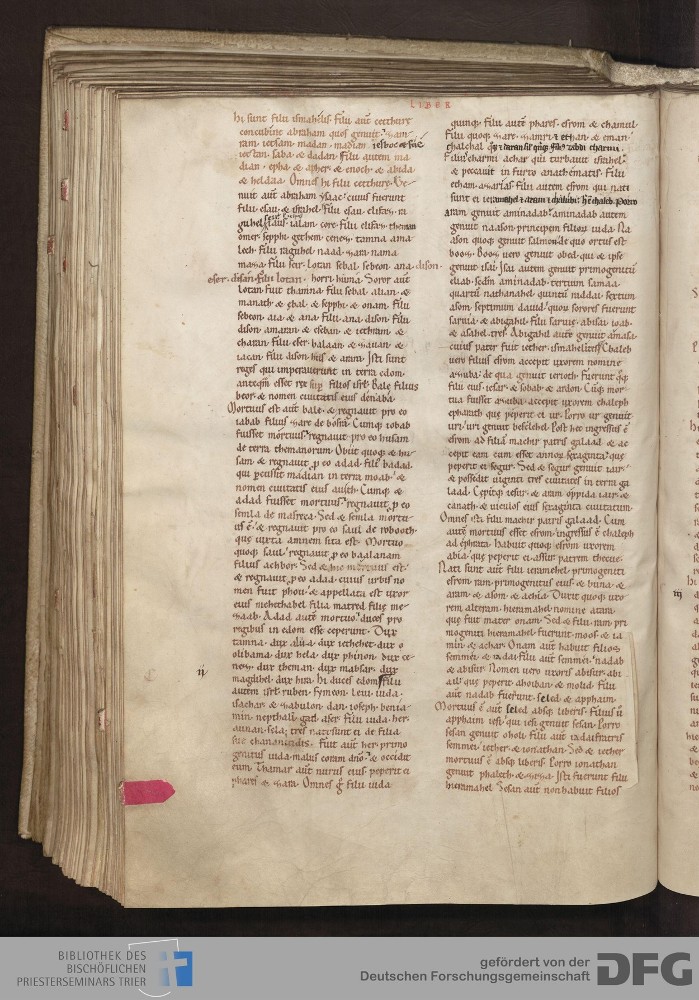 LIBER
hi sunt filii ismahelis. filii aut cetthure
concubine abraham quos genuit. zam-
ram. iecsam. madan. madian. iesboc & sue
iectan. saba. & dadan. filii autem ma
dian. epha. & apher. & enoch. & abida.
& heldaa. Omnes hi filii cetthure. Ge-
nuit aut abraham ysaac. cuius fuerunt
filii. esau. & israhel. filii esau. elifaz. ra
guhel. iaus. ialan. core. filii elifaz. theman
omer. sepphi. gethem. cenez. tamna. ama
lech. filii raguhel. naad. zara. nama
maza. filii seir. lotan. sebal. sebeon. ana. dison.
eser. disan. filii lotan. horri. huma. Soror aut
lotan fuit thamna. filii sebal. alian. &
manath. & ebal. & sepphi. & onam. filii
sebeon. aia. & ana. filii ana. dison. filii
dison. amaran. & eseban. & iethram. &
charan. filii eser. balaan. & zauan. &
iacan. filii dison. hus. & aran. Isti sunt
reges qui imperauerunt in terra edom.
anteqm esset rex sup filios isrl. Bale filius
beor. & nomen ciuitatis eius denaba.
Mortuus est aut bale. & regnauit pro eo
iabab filius zare de bosra. Cumq iobab
fuisset mortuus. regnauit pro eo husam
de terra themanorum. Obiit quoq & hu-
sam. & regnauit p eo adad filius badad.
qui pcussit madian in terra moab. &
nomen ciuitatis eius auith. Cumq &
adad fuisset mortuus. regnauit p eo
semla de masreca. Sed & semla mortu-
us e. & regnauit pro eo saul de robooth.
que iuxta amnem sita est. Mortuo
quoq saul. regnauit p eo baalanam
filius achbor. Sed & hic mortuus est.
& regnauit p eo adad. cuius urbis no
men fuit phou. & appellata est uxor
eius mehethabel filia matred filie me-
zaab. Adad aute mortuo. duces pro
regibus in edom esse ceperunt. Dux
tamna. dux alua. dux iethehet. dux o
olibama. dux hela. dux phinon. dux ce-
nez. dux theman. dux mabsar. dux
magdihel. dux hira. hi duces edom. Filii
ii
autem isrl. ruben. symeon. leui. iuda.
isachar. & zabulon. dan. ioseph. benia-
min. nepthali. gad. aser. filii iuda. her.
aunan. sela. tres nati sunt ei de filia
sue chananitidis. Fuit aut her primo
genitus iuda. malus coram dno. & occidit
eum. Thamar aut nurus eius peperit ei
phares & zara. Omnes g filii iuda.
quinq. filii aute phares. esrom & chamul.
filii quoq zare. zamri & ethan. & eman.
chalchal
filii charmi. achar qui turbauit israhel.
& peccauit in furto anathematis. Filii
etham. azarias. filii autem esrom qui nati
sunt ei
aram. genuit aminadab. aminadab autem
genuit naason. principem filioru iuda. Na
ason quoq genuit salmon. de quo ortus est
boos. Boos uero genuit obed. qui & ipse
genuit isai. Isai autem genuit primogenitu
eliab. scdm aminadab. tertium samaa.
quartu nathanahel. quintu raddai. sextum
asom. septimum dauid. quoru sorores fuerunt
saruia. & abigahil. filii saruie. abisai. ioab.
& asahel. tres. Abigahil aute genuit amasa.
cuius pater fuit iether. ismahelites. Chaleb
uero filius esrom accepit uxorem nomine
azuba. de qua genuit ierioth. Fuerunt qq
filii eius. iesar. & sobab. & ardon. Cuq mor-
tua fuisset azuba. accepit uxorem chaleph
epharath. que peperit ei ur. Porro ur genuit
uri. uri genuit beselehel. Post hec ingressus e
esrom ad filia machir patris galaad. & ac
cepit eam cum esset annoru sexaginta. que
peperit ei segur. Sed & segur genuit iair.
& possedit uiginti tres ciuitates in terra ga
laad. Cepitq iessur. & aram oppida iair. &
canath. & uiculos eius sexaginta ciuitatum.
Omnes isti filii machir patris galaad. Cum
aute mortuus esset esrom. ingressus e chaleph
ad ephrata. habuit quoq esrom uxorem
abia. que peperit ei assur patrem thecue.
Nati sunt aut filii ieramehel. primogeniti
esrom. ram. primogenitus eius. & buna. &
aram. & asom. & achia. Duxit quoq uxo
rem alteram hieramahel nomine atara.
que fuit mater onam. Sed & filii ram pri
mogeniti hieramahel fuerunt. moos. & ia
iii
min. & achar. Onam aut habuit filios
semmei. & iadai. filii aut semmei. nadab
& abisur. Nomen uero uxoris abisur. abi
ail. que peperit ahoiban. & molid. filii
aut nadab fuerunt. seled & apphaim.
Mortuus e aut seled absq liberis. Filius u
apphaim iesi. qui iesi genuit sesan. Porro
sesan genuit oholi. filii aut iadai fratris
semmei. iether. & ionathan. Sed & iether
mortuus e absq liberis. Porro ionathan
genuit phaleth. & ziza. Isti fuerunt filii
hieramahel. Sesan aut non habuit filios
BIBLIOTHEK DES
BISCHÖFLICHEN
PRIESTERSEMINARS TRIER
gefördert von der
Deutschen Forschungsgemeinschaft
DFG